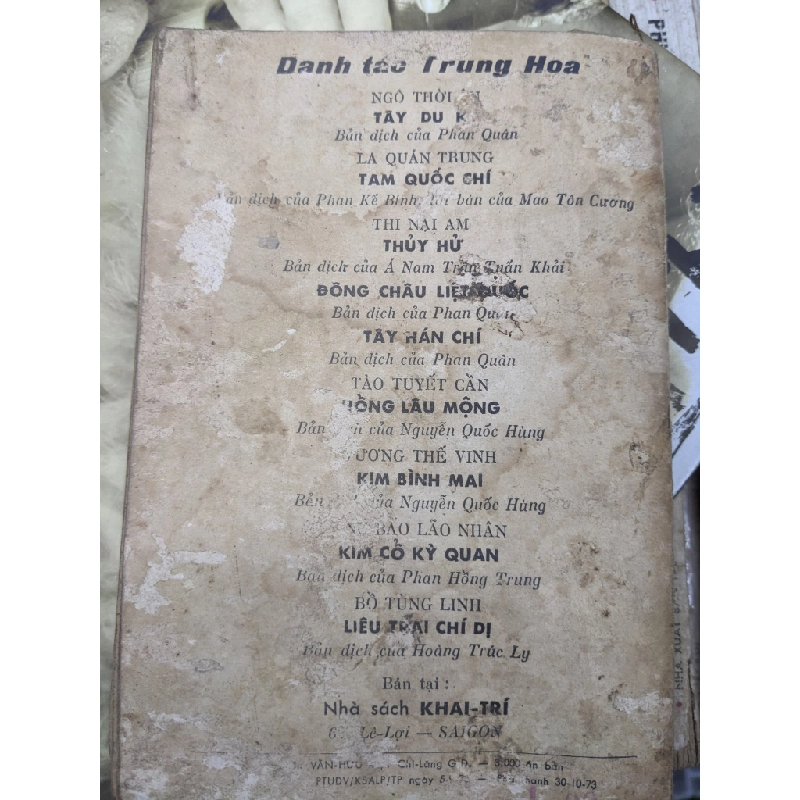 Danh tác Trung Hoa
NGÔ THỜI
TÂY DU K
Bản dịch của Phan Quân
LA QUÁN TRUNG
TAM QUỐC CHÍ
dịch của Phan Kế Bính, bản của Mao Tôn Cương
THI NẠI AM
THỦY HỬ
Bản dịch của Á Nam Trần Tuấn Khải
ĐÔNG CHÂU LIỆT QUỐC
Bản dịch của Phan Quân
TÂY HÁN CHÍ
Bản dịch của Phan Quân
TÀO TUYẾT CẦN
HỒNG LÂU MỘNG
Bản dịch của Nguyễn Quốc Hùng
VƯƠNG THẾ VINH
KIM BÌNH MAI
Bản dịch của Nguyễn Quốc Hùng
BÃO LÃO NHÂN
KIM CỔ KỲ QUAN
Bản dịch của Phan Hồng Trung
BỒ TÙNG LINH
LIÊU TRAI CHÍ DỊ
Bản dịch của Hoàng Trúc Ly
Bán tại :
Nhà sách KHAI-TRÍ
Lê-Lợi — SAIGON
VĂN-HỮU Chi-Lăng G.Đ. — 3.000 ấn bản
PTUDV/KSALP/TP ngày — hành 30-10-73
NHÀ XUẤT BẢN